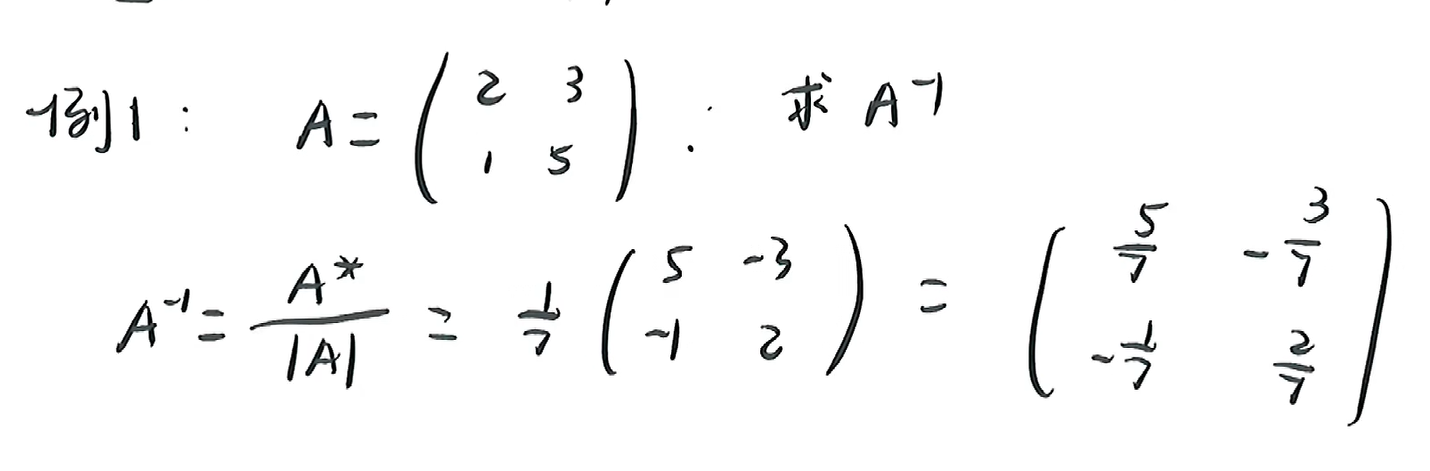 例1: A = \begin{pmatrix} 2 & 3 \\ 1 & 5 \end{pmatrix} . 求 A^{-1}
A^{-1} = \frac{A^*}{|A|} = \frac{1}{7} \begin{pmatrix} 5 & -3 \\ -1 & 2 \end{pmatrix} = \begin{pmatrix} \frac{5}{7} & -\frac{3}{7} \\ -\frac{1}{7} & \frac{2}{7} \end{pmatrix}